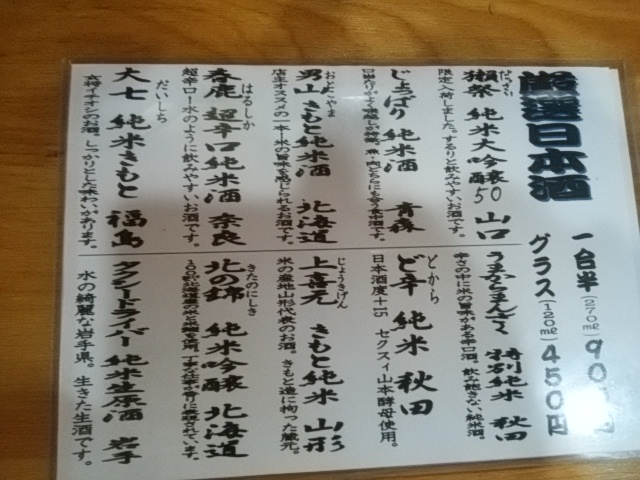 厳選日本酒
一合半(270ml)90円
グラス(120ml)450円
だっさい
獺祭 純米大吟醸50 山口
限定入荷しました。するりと飲みやすいお酒です。
じょっぱり 純米酒 青森
おとこやま
男山 きもと純米酒 北海道
店主オススメの一本!米の旨味を感じられるお酒です。
はるしか
春鹿 超辛口純米酒 奈良
超辛口!水のように飲みやすいお酒です。
だいしち
大七 純米きもと 福島
女将イチオシのお酒。しっかりとした味わいがあります。
うまからまんさく 特別純米 秋田
辛さの中に米の旨味がある辛口酒。飲み飽きない純米酒。
とから
ど辛 純米 秋田
日本酒度+15 セクスィ山本酵母使用。
じょうきげん
上喜元 きもと純米 山形
米の産地山形代表のお酒。きもと造に拘った蔵元。
きたのにしき
北の錦 純米吟醸 北海道
タクシードライバー 純米生原酒 岩手
水の綺麗な岩手県。生きた生酒です。